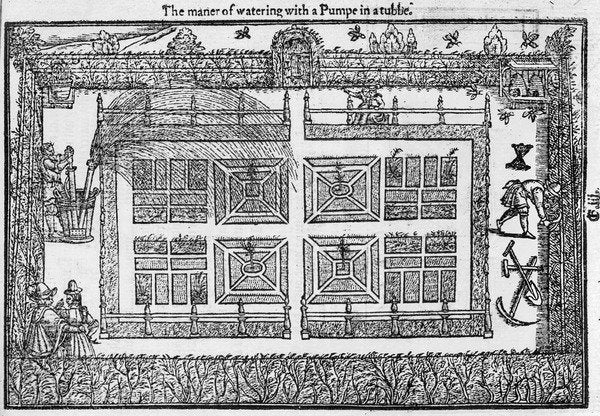 The maner of watering with a Pumpe in a tubbe.